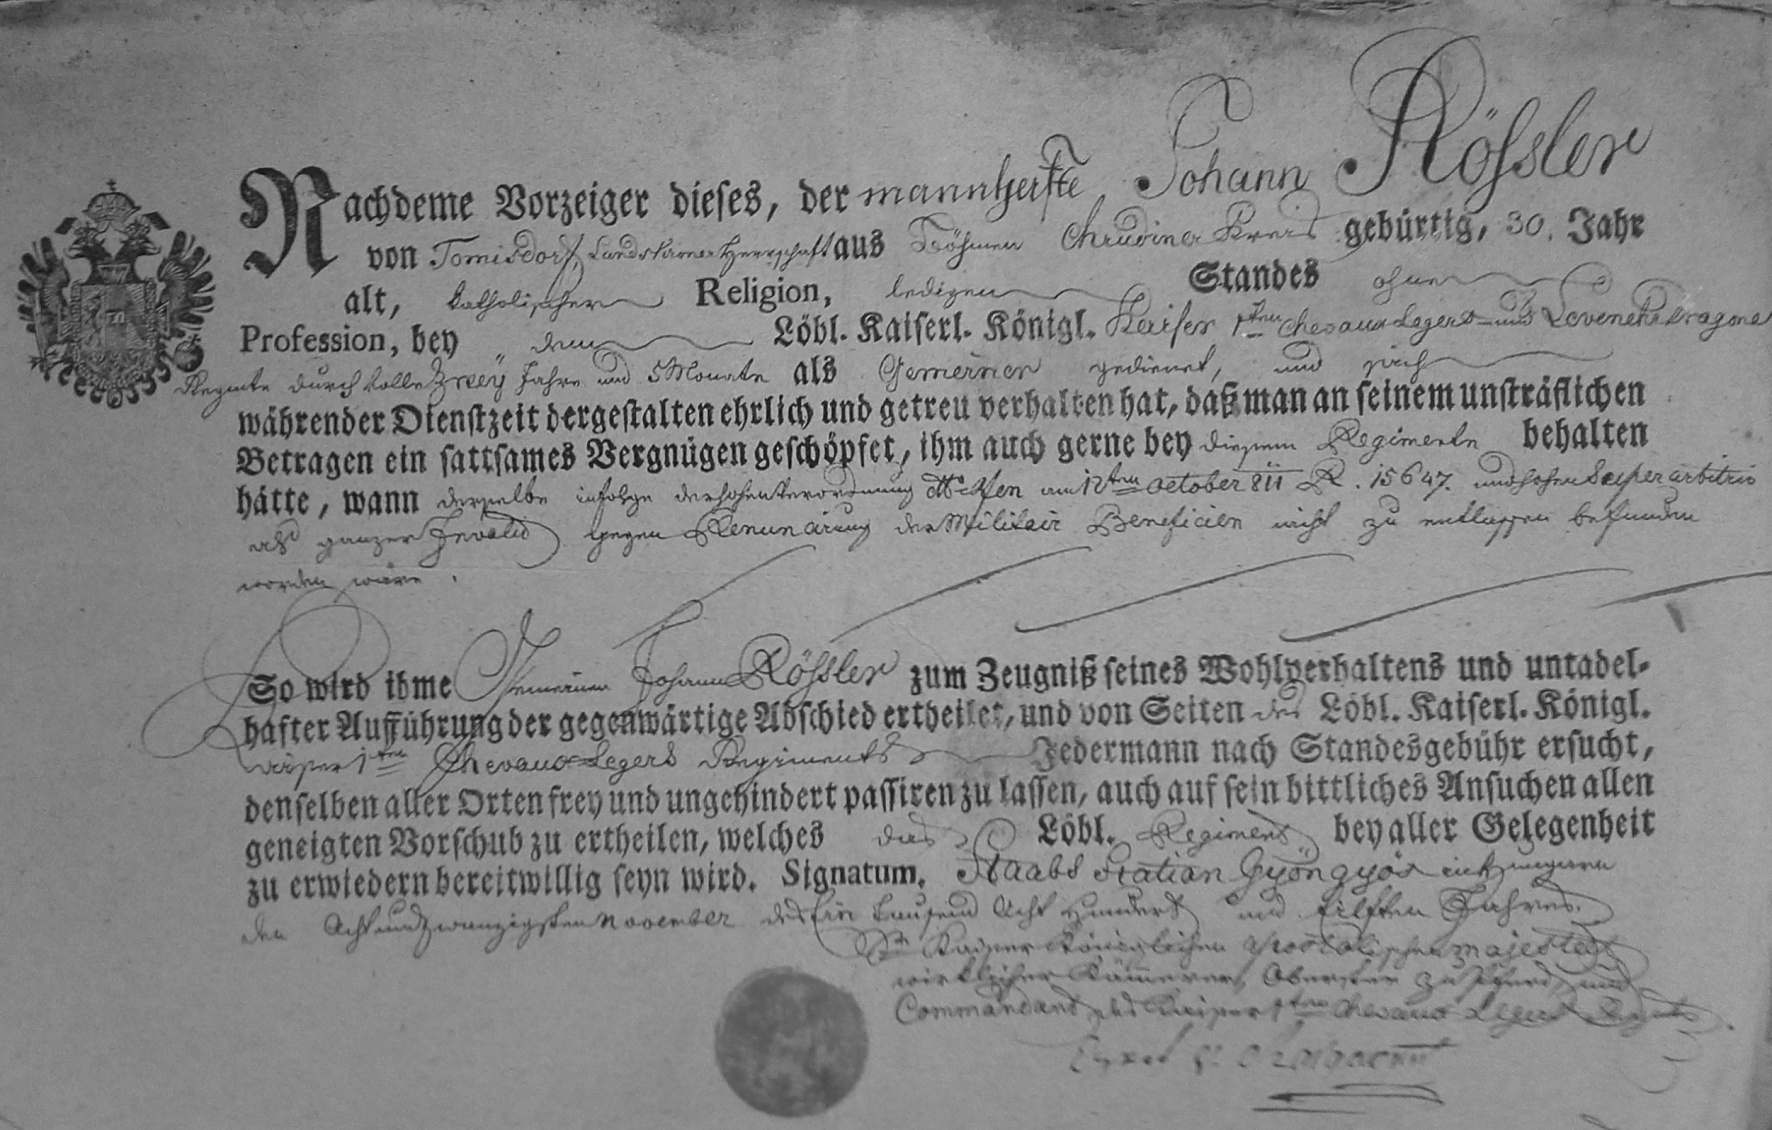 Nachdeme Vorzeiger dieses, der mannhafte Johann Rößler
von Tomisdorf, Landskroner Herrschaft aus Böhmen Chrudiner Kreis gebürtig, 30. Jahr
alt, katholischer Religion, ledigen Standes ohne
Profession, bey dem Löbl. Kaiserl. Königl. Kaiser 1ten Chevaux Legers und Levenehr Dragoner
Regmte durch volle Zweÿ Jahre und 5 Monate als Gemeiner gedienet, und sich
währender Dienstzeit dergestalten ehrlich und getreu verhalten hat, daß man an seinem unsträflichen
Betragen ein sattsames Vergnügen geschöpfet, ihm auch gerne bey diesem Regimente behalten
hätte, wann derselbe infolge der hohen Verordnung am 12ten October 811 R. 15647. und hohen Superarbitrio
als ganzer Invalid gegen Renuncirung der Militair Beneficien nicht zu entlassen befunden
worden wäre.
So wird ihme Gemeinen Johann Rößler zum Zeugniß seines Wohlverhaltens und untadel-
hafter Aufführung der gegenwärtige Abschied ertheilet, und von Seiten des Löbl. Kaiserl. Königl.
Kaiser 1ten Chevaux Legers Regiments Jedermann nach Standesgebühr ersucht,
denselben aller Orten frey und ungehindert passiren zu lassen, auch auf sein bittliches Ansuchen allen
geneigten Vorschub zu ertheilen, welches das Löbl. Regiment bey aller Gelegenheit
zu erwiedern bereitwillig seyn wird. Signatum, Staabs Station Gyöngyös in Hungarn
den Acht und Zwanzigsten November des Ein Tausend Acht Hundert und Eilften Jahres.
Sr Kaiser Königlichen Apostolischen Majestät
wirklicher Kämmerer, Oberster zu Pferd, und
Commandant des Kaiser 1ten Chevaux Legers Regmts